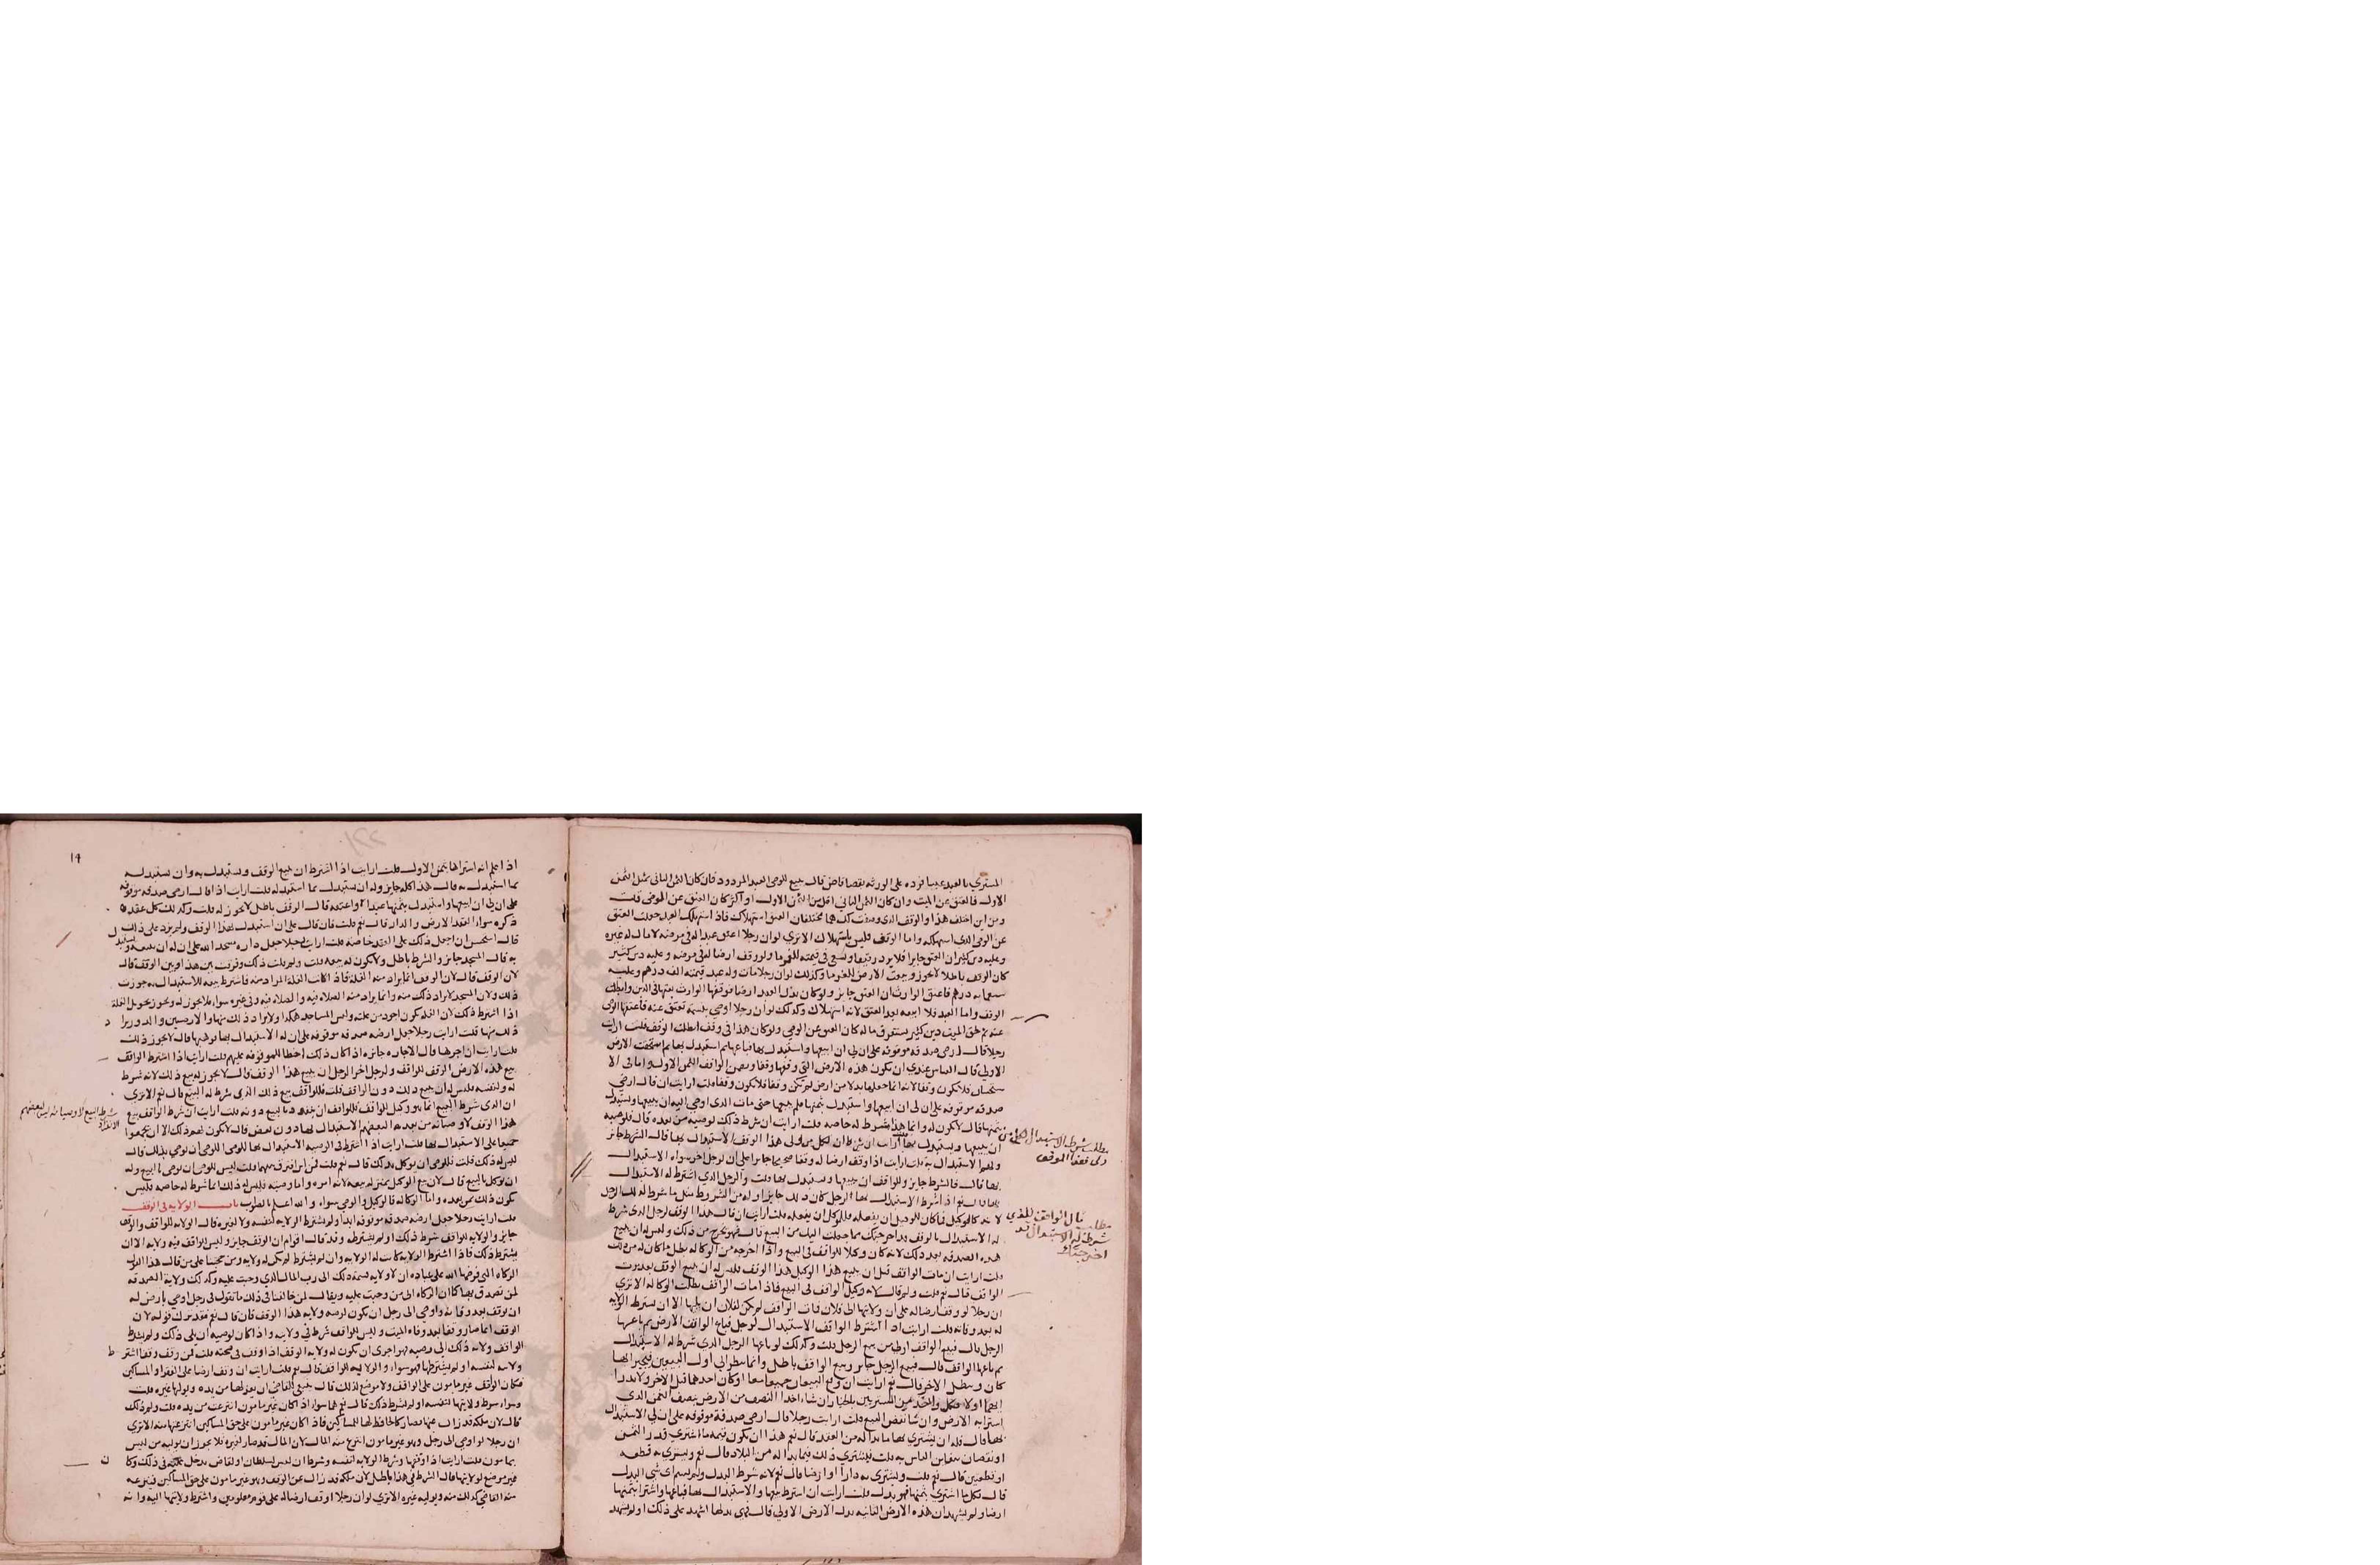 المشتري بالعبد عيبا فرده على الورثه بقضا قاض قال يبيع الوصي العبد المردود فان كان الثمن الثاني مثل الثمن
الاول فالعتق عن الميت وان كان الثمن الثاني اقل من الثمن الاول او اكثر كان العتق عن الموصي قلت
ومن اين اختلف هذا والوقف الذي وصفت لك هما مختلفان العتق استهلاك فاذا استهلك العبد جعلت العتق
عن الوصي الذي استهلكه واما الوقف فليس باستهلاك الا تري لو ان رجلا اعتق عبدا له في مرضه لا مال له غيره
وعليه دين كثير ان العتق جايز فلا يرد رقيقا ويسعى في قيمته للغرما ولو وقف ارضا له في مرضه وعليه دين كثير
كان الوقف باطلا لا يجوز وبيعت الارض للغرما وكذلك لو ان رجلا مات وله عبد قيمته الف درهم وعليه
الوقف واما العبد فلا ابيعه بعد العتق لانه استهلاك وكذلك لو ان رجلا اوصي بنسمة تعتق عنه فاعتقها الوصي
عنه ثم لحق الميت دين كثير يستغرق ماله كان العتق عن الوصي ولو كان هذا في وقف ابطلت الوقف قلت ارايت
رجلا قال ارضي صدقه موقوفه على ان لي ان ابيعها واستبدل بها فباعها ثم استبدل بها ثم استحقت الارض
الاولي قال القياس عندي ان تكون هذه الارض التي وقفها وقفا ويضمن الواقف الثمن الاول واما في الا
ستحسان فلا تكون وقفا لانه انما جعلها بدلا من ارض لم تكن وقفا فلا تكون وقفا قلت ارايت ان قال ارضي
صدقه موقوفه على ان لي ان ابيعها واستبدل بثمنها فلم يبيعها حتى مات الذي اوصي اليه ان يبيعها ويستبدل
بثمنها قال لا يكون له وانما هذا شرط له خاصه قلت ارايت ان شرط ذلك لوصيه من بعده قال فلوصيه
ان يبيعها ويستبدل بها قلت ارايت ان شرط ان لكل من ولي هذا الوقف الاستبدال بها قال الشرط جايز
ولهم الاستبدال به قلت ارايت اذا وقف ارضا له وقفا صحيحا جايزا على ان لرجل اخر سواه الاستبدال
بها قال فالشرط جايز وللواقف ان يبيعها ويستبدل بها قلت والرجل الذي اشترط له الاستبدال
له الاستبدال بالوقف قد اخرجتك مما جعلت اليك من البيع قال فهو يخرج من ذلك وليس له ان يبيع
هذه الصدقه بعد ذلك لانه كان وكيلا للواقف في البيع واذا اخرجه من الوكاله بطل ما كان له من ذلك
قلت ارايت ان مات الواقف قبل ان يبيع هذا الوكيل هذا الوقف فليس له ان يبيع الوقف بعد موت
الواقف قال نعم قلت ولم قال لانه وكيل الواقف في البيع فاذا مات الواقف بطلت الوكاله الا تري
ان رجلا لو وقف ارضا له على ان ولايتها الى فلان فمات الواقف لم يكن لفلان ان يليها الا ان يشترط الولايه
له بعد وفاته قلت ارايت اذا اشترط الواقف الاستبدال لرجل فباع الواقف الارض ثم باعها
الرجل قال فبيع الواقف اولي من بيع الرجل قلت وكذلك لو باعها الرجل الذي شرط له الاستبدال
ثم باعها الواقف قال فبيع الرجل جايز وبيع الواقف باطل وانما ينظر الي اول البيعين فيجيز ايهما
كان ويبطل الاخر قال نعم ارايت ان وقع البيعان جميعا معا او كان احدهما قبل الاخر ولا يدرا
ايهما اولا فكل واحد من المشتريين بالخيار ان شاء اخذ النصف من الارض بنصف الثمن الذي
اشترا به الارض وان شا نقض البيع قلت ارايت رجلا قال ارضي صدقة موقوفه على ان لي الاستبدال
بها قال فله ان يشتري بها ما بدا له من العقد قال نعم هذا ان يكون قيمه ما اشتري قدر الثمن
او نقصان يتغابن الناس به قلت فيشتري ذلك فيما بدا له من البلاد قال نعم ويشتري به قطعه
او قطعتين قال نعم قلت ويشتري به دارا او ارضا قال نعم لانه شرط البدل ولم يسم اي شي البدل
قال فكل ما اشتري بثمنها فهو بدل قلت ارايت ان اشترط بيعها والاستبدال بها فباعها واشترا بثمنها
ارضا ولم يشهد ان هذه الارض الثانيه بدل الارض الاولي قال فهي بدلها اشهد على ذلك او لم يشهد
مطلب شرط الاستبدال لكل من
ولي هذا الوقف
مطلب قال الواقف للذي
شرط له الاستبدال قد
اخرجتك
١٩
اذا علم انه اشتراها بثمن الاول قلت ارايت اذا اشترط ان يبيع الوقف ويستبدل به وان يستبدل
بما استبدل به قال هذا كله جايز وله ان يستبدل بما استبدله قلت ارايت اذا قال ارضي صدقه موقوفه
على ان لي ان ابيعها واستبدل بثمنها عبدا واعتقه قال الوقف باطل لا يجوز له قلت وكذلك كل عقده
ذكره سواء العقد الارض والدار قال نعم قلت فان قال على ان استبدل بهذا الوقف ولم يزد على ذلك
قال استحسن ان اجعل ذلك على العقد خاصه قلت ارايت رجلا جعل داره مسجدا لله على ان له ان يبيعه ويستبدل
به قال المسجد جايز والشرط باطل ولا يكون له بيعه قلت ولم قلت ذلك وفرقت بين هذا وبين الوقف قال
لان الوقف قال لان الوقف انما يراد منه الغلة فاذا كانت الغلة المراد منه فاشترط بيعه للاستبدال به جوزت
ذلك ولان المسجد لا يراد ذلك منه وانما يراد منه الصلاه فيه والصلاه فيه وفي غيره سواء فلا يجوز له ويجوز تحويل الغلة
ذلك منها قلت ارايت رجلا جعل ارضه صدقه موقوفه على ان له الاستبدال بها فوهبها قال لا يجوز ذلك
قلت ارايت ان اجرها قال الاجاره جايزه اذا كان ذلك احظا للموقوفه عليهم قلت ارايت اذا اشترط الواقف
بيع هذه الارض الوقف للواقف ولرجل اخر الرجل ان يبيع هذا الوقف قال لا يجوز له بيع ذلك لانه شرط
له ولنفسه فليس له ان يبيع ذلك دون الواقف قلت فللواقف بيع ذلك الذي شرط له البيع قال نعم الا تري
ان الذي شرط البيع انما هو وكيل للواقف فللواقف ان ينفرد بالبيع دونه قلت ارايت ان شرط الواقف بيع
هذا الوقف لاوصيائه من بعده البعضهم الاستبدال بها دون بعض قال لا يكون لهم ذلك الا ان يجمعوا
جميعا على الاستبدال بها قلت ارايت اذا اشترط في الوصيه الاستبدال بها للوصي اللوصي ان يوصي بذلك قال
ليس له ذلك قلت فللوصي ان يوكل بذلك قال نعم قلت فمن اين افترق منهما قلت ليس للوصي ان يوصي بالبيع وله
ان يوكل بالبيع قال لان بيع الوكيل بمنزله بيعه لانه امره واما وصيته فليس له ذلك انما شرط له خاصه فليس
يكون ذلك لمن بعده واما الوكاله فالوكيل والوصي سواء والله اعلم بالصواب باب الولايه في الوقف
قلت ارايت رجلا جعل ارضه صدقه موقوفه ابدا ولم يشترط الولايه لنفسه ولا لغيره قال الولايه للواقف والوقف
جايز والولايه للواقف شرط ذلك او لم يشترطه وقد قال اقوام ان الوقف جايز وليس الواقف فيه ولايه الا ان
يشترط ذلك فاذا اشترط الولايه كانت له الولايه وان لم يشترط لم يكن له ولايه ومن حجتنا على من قال هذا القول
الزكاه التي فرضها الله على عباده ان لا ولايه قسمة ذلك الى رب المال الذي وجبت عليه وكذلك ولاية الصدقه
لمن تصدق بها كما ان الزكاه الى من وجبت عليه ويقال لمن خالفنا في ذلك ما تقول في رجل اوصي بارض له
ان يوقف بعد وفاته واوصي الى رجل ان يكون لوصيه ولايه هذا الوقف فان قال نعم فقد ترك قوله لان
الوقف انما صار وقفا بعد وفاه الميت وليس للواقف شرط في ولايه واذا كان لوصيه ان يلي ذلك ولم يشترط
الواقف ولايه ذلك الي وصيه فهو احرى ان تكون له ولايه الوقف اذا وقف في صحته قلت فمن وقف وقفا اشترط
ولايته لنفسه او لم يشترطها فهو سواء والولايه للواقف قال نعم قلت ارايت ان وقف ارضا على الفقرا والمساكين
فكان الواقف غير مامون على الواقف ولا موضع لذلك قال ينبغي للقاضي ان ينزعها من يده ويوليها غيره قلت
وسواء شرط ولايتها لنفسه او لم يشترط ذلك قال نعم هما سواء اذا كان غير مامون انتزعت من يده قلت ولم ذلك
قال لان ملكه قد زال عنها فصار كالحافظ لها للمساكين فاذا كان غير مامون على حق المساكين انتزعتها منه الا تري
ان رجلا لو اوصي الى رجل وهو غير مامون انتزع منه المال لان المال قد صار لغيره فلا يجوز ان يوليه من ليس
بمامون قلت ارايت اذا وقفها وشرط الولايه لنفسه وشرط ان ليس لسلطان او لقاض يدخل عليه في ذلك وكان
غير موضع لولايتها قال الشرط في هذا باطل لان ملكه قد زال عن الوقف وهو غير مامون على حق المساكين فينزعه
منه القاضي كذلك منه ويوليه غيره الا تري لو ان رجلا اوقف ارضا له على قوم معلومين واشترط ولايتها اليه وانه
شرط البيع لاوصيائه ليس لبعضهم
الانفراد